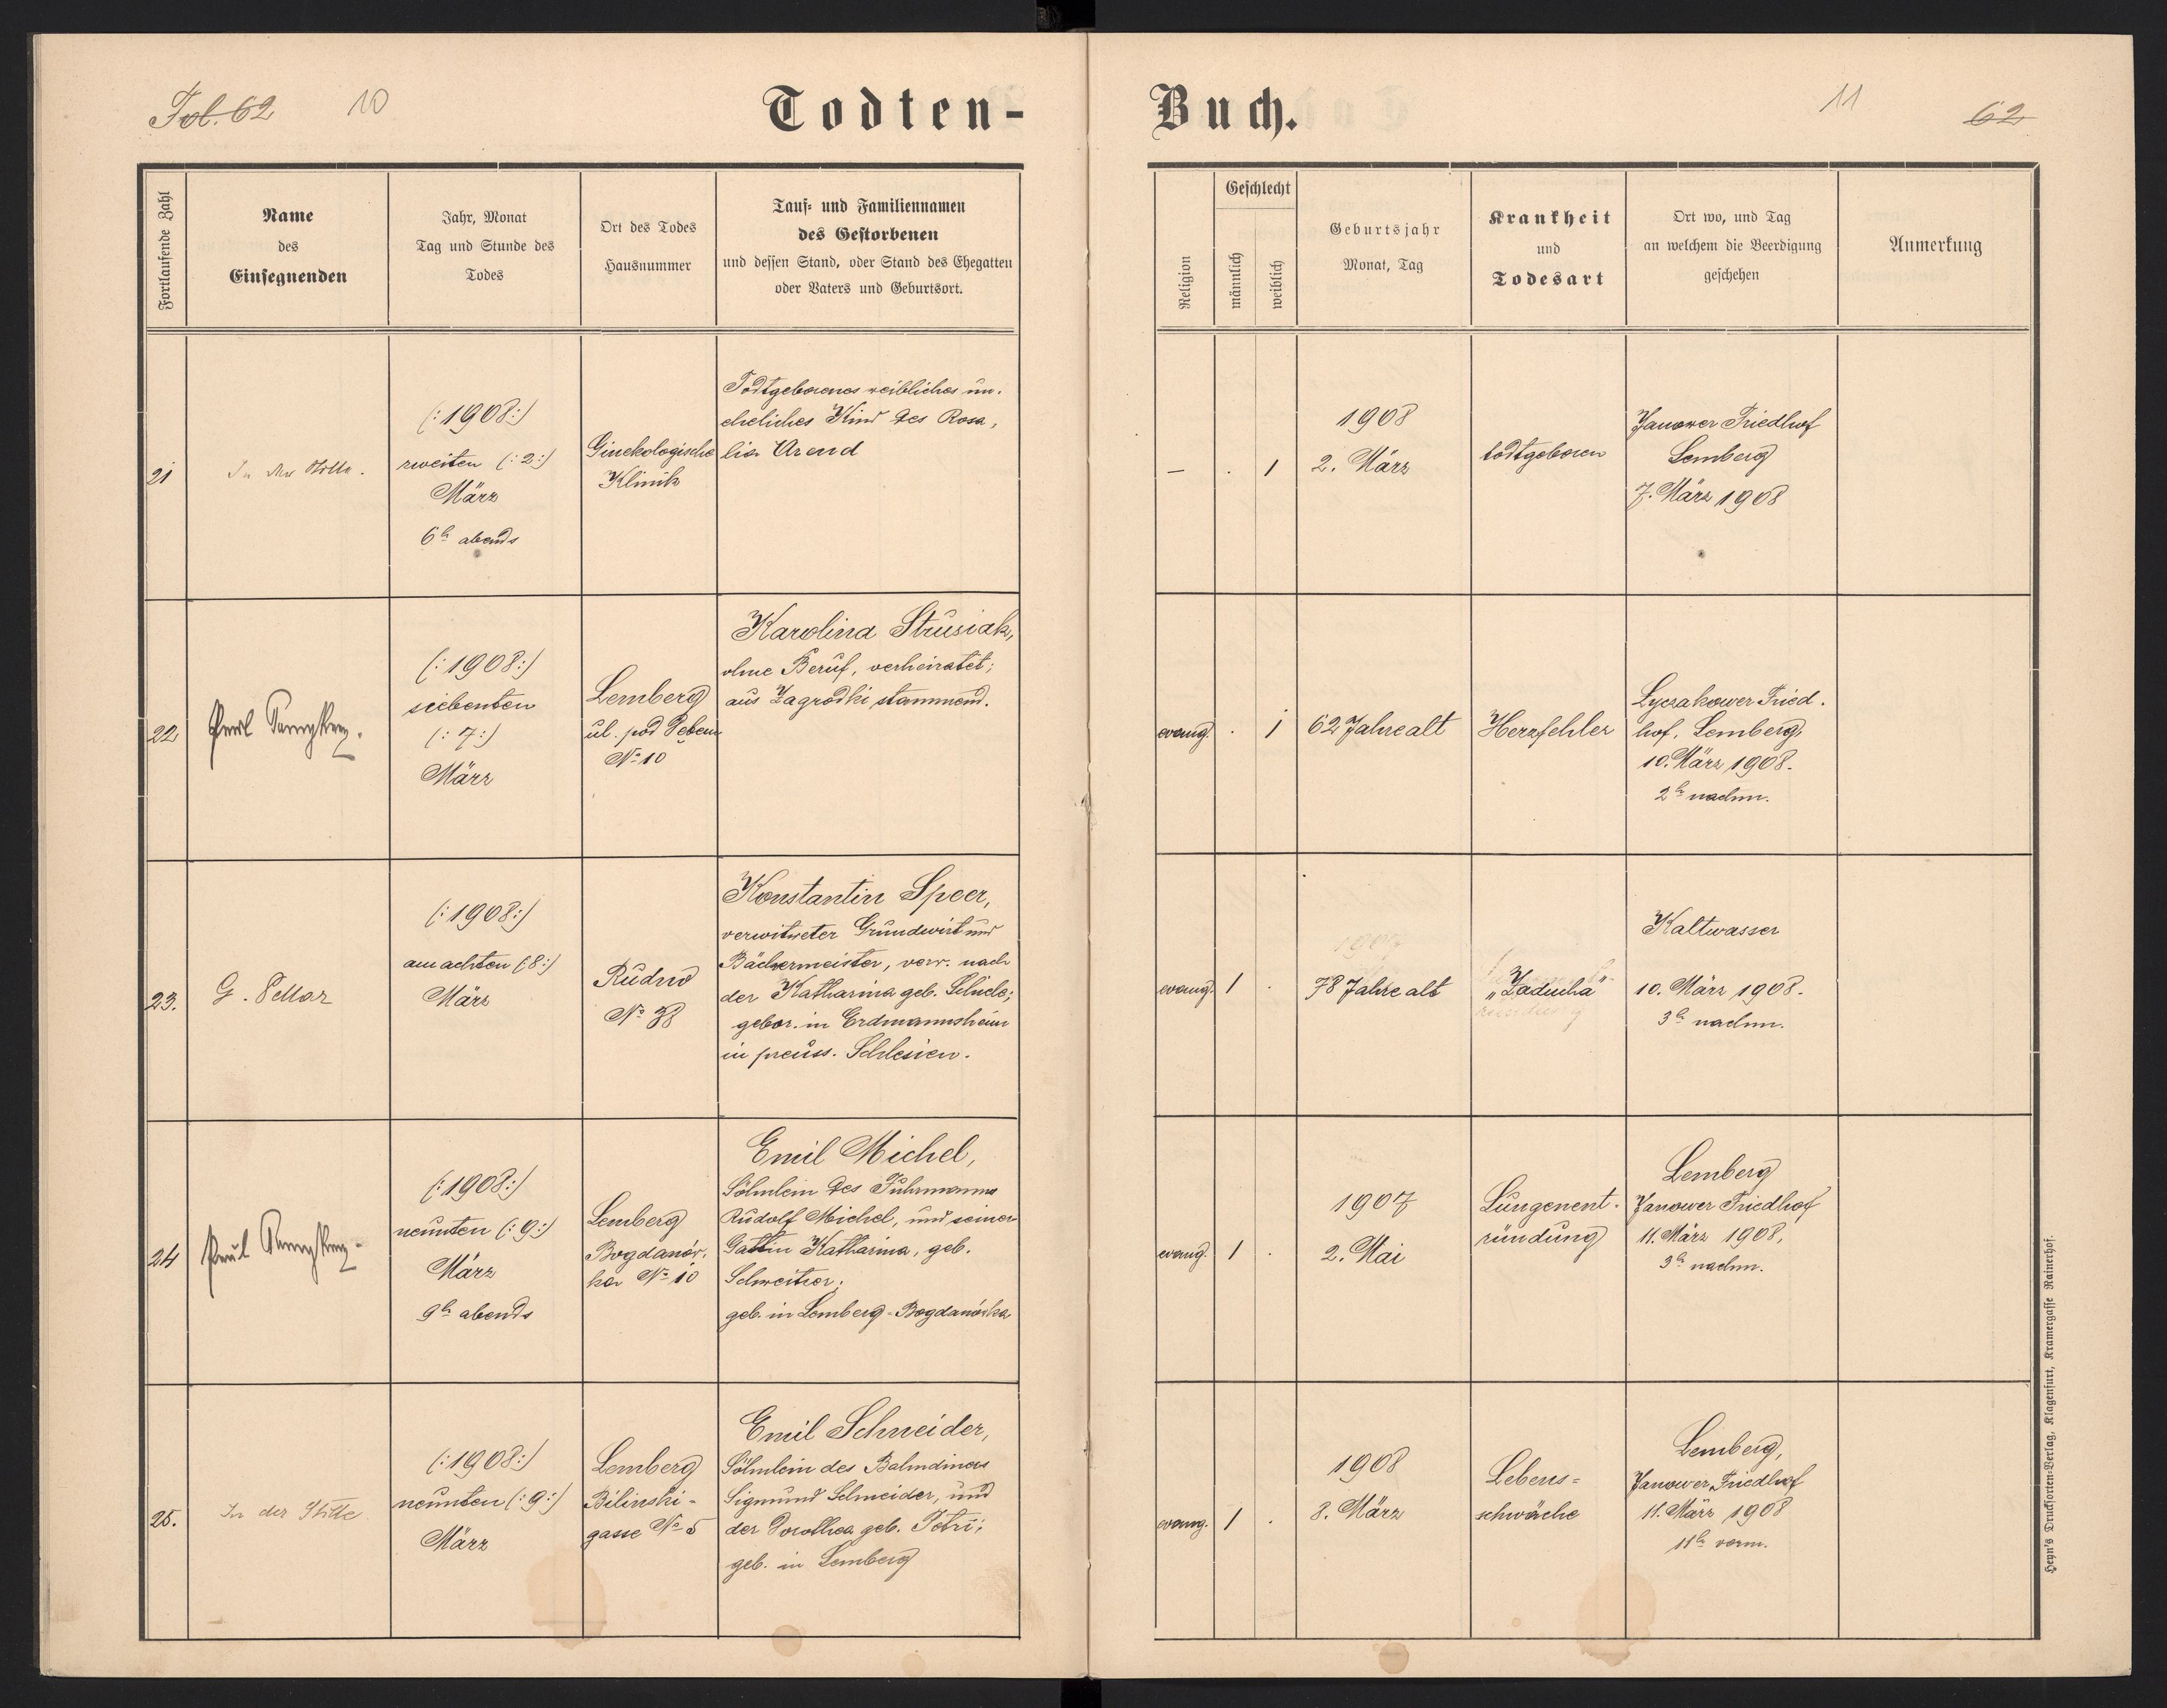 Fol. 62
10
Todten-
Fortlaufende Zahl
Name
des
Einsegnenden
Jahr, Monat
Tag und Stunde des
Todes
Ort des Todes
Hausnummer
Tauf- und Familiennamen
des Gestorbenen
und dessen Stand, oder Stand des Ehegatten
oder Vaters und Geburtsort.
21
In der Stille.
(:1908:)
zweiten (:2:)
März
6h abends
Ginekologische
Klinik
Todtgeborenes weibliches un-
eheliches Kind des Rosa,
lia Arend
22
(:1908:)
siebenten
(:7:)
März
Lemberg
ul. pod
№ 10
Karolina Strusiak,
ohne Beruf, verheiratet;
aus Zagrodki stammend.
23.
G.
(:1908:)
am achten (:8:)
März
Rudno
№ 38
Konstantin Speer,
verwitweter Grundwirt und
Bäckermeister, verw. nach
der Katharina geb.
gebor. in Erdmannsheim
in preuss. Schlesien.
24
(:1908:)
neunten (:9:)
März
9h abends
Lemberg
Bogdanów-
ka № 10
Emil Michel,
Söhnlein des Fuhrmanns
Rudolf Michel, und seiner
Gattin Katharina, geb.
Schweitzer;
geb. in Lemberg-Bogdanówka
25.
In der Stille
(:1908:)
neunten (:9:)
März
Lemberg
Bilinski-
gasse № 5
Emil Schneider,
Söhnlein des Bahndieners
Sigmund Schneider, und
der Dorothea geb. Petri;
geb. in Lemberg
Buch.
11
62
Religion
Geschlecht
männlich
weiblich
Geburtsjahr
Monat, Tag
Krankheit
und
Todesart
Ort wo, und Tag
an welchem die Beerdigung
geschehen
Anmerkung
— . 1
1908
2. März
todtgeboren
Janower Friedhof
Lemberg
7. März 1908
evang. . 1
62 Jahre alt
Herzfehler
Lyczakower Fried-
hof, Lemberg,
10. März 1908.
2h nachm.
evang. 1 .
78 Jahre alt
„Zaducha"
Kaltwasser
10. März 1908.
3h nachm.
evang. 1 .
1907
2. Mai
Lungenent-
zündung
Lemberg
Janower Friedhof
11. März 1908,
3h nachm.
evang. 1 .
1908
8. März
Lebens-
schwäche
Lemberg,
Janower Friedhof
11. März 1908
11h vorm.
Heyn's Drucksorten-Verlag, Klagenfurt, Kramergasse Rainerhof.